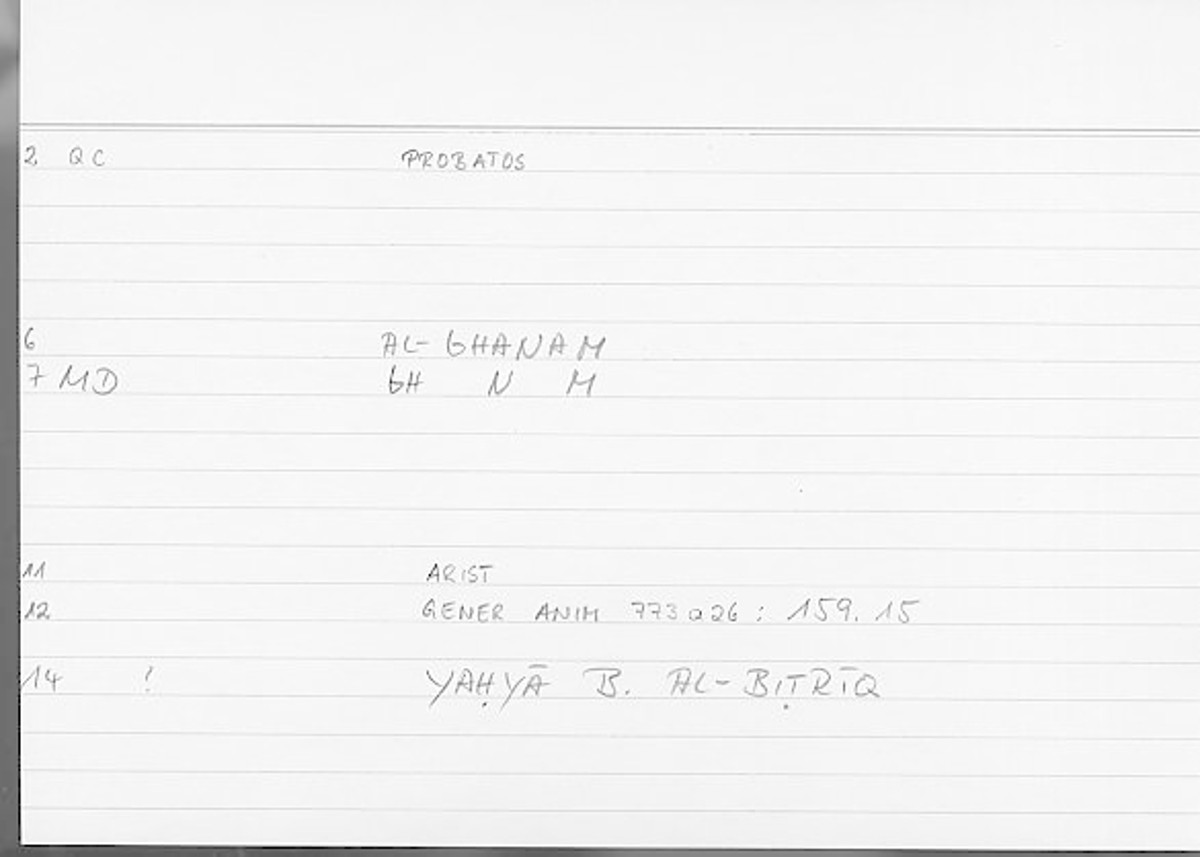 2 QC PROBATOS
6 AL-GHANAM
7 MD GH N M
11 ARIST
12 GENER ANIM 773a26: 159.15
14 ! YAḤYĀ B. AL-BIṬRĪQ